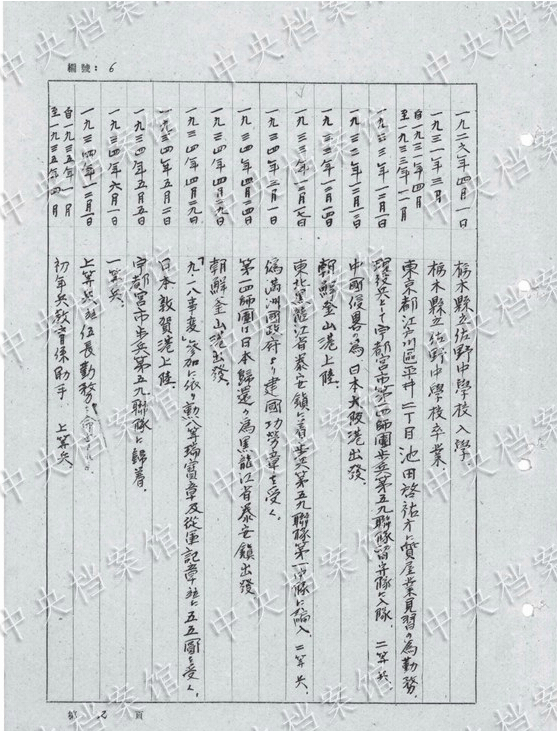 編號：6
一九二六年四月一日 栃木縣立佐野中學校入學.
一九三一年三月 栃木縣立佐野中學校卒業.
自一九三一年四月 至一九三三年一月 東京都江戸川區平井二丁目 池田啓祐方に質屋業見習の為勤務.
一九三三年 現役兵として宇都宮市第十四師團步兵第五九聯隊留守隊に入隊. 二等兵.
中國侵畧の為日本大阪港出發
朝鮮釜山港上陸.
東北黑龍江省泰安鎮に着步兵第五九聯隊第一中隊に編入. 二等兵.
一九三四年三月一日 偽滿洲國政府より建國功勞章を受く.
一九三四年四月 第十四師團は日本歸還の為黑龍江省泰安鎮出發
一九三四年四月 朝鮮釜山港出發.
一九三四年四月二九日 「九.一八事変」参加に依り勲八等瑞寶章及從軍記章並に五五圓を受く.
一九三四年五月二日 日本敦賀港上陸.
一九三四年五月五日 宇都宮市步兵第五九聯隊に歸着.
一九三四年六月一日 一等兵.
一九三四年十二月一日 上等兵 伍長勤務
自一九三五年一月 至一九三五年四月 初年兵教育係助手. 上等兵
第 2 頁
中央档案馆